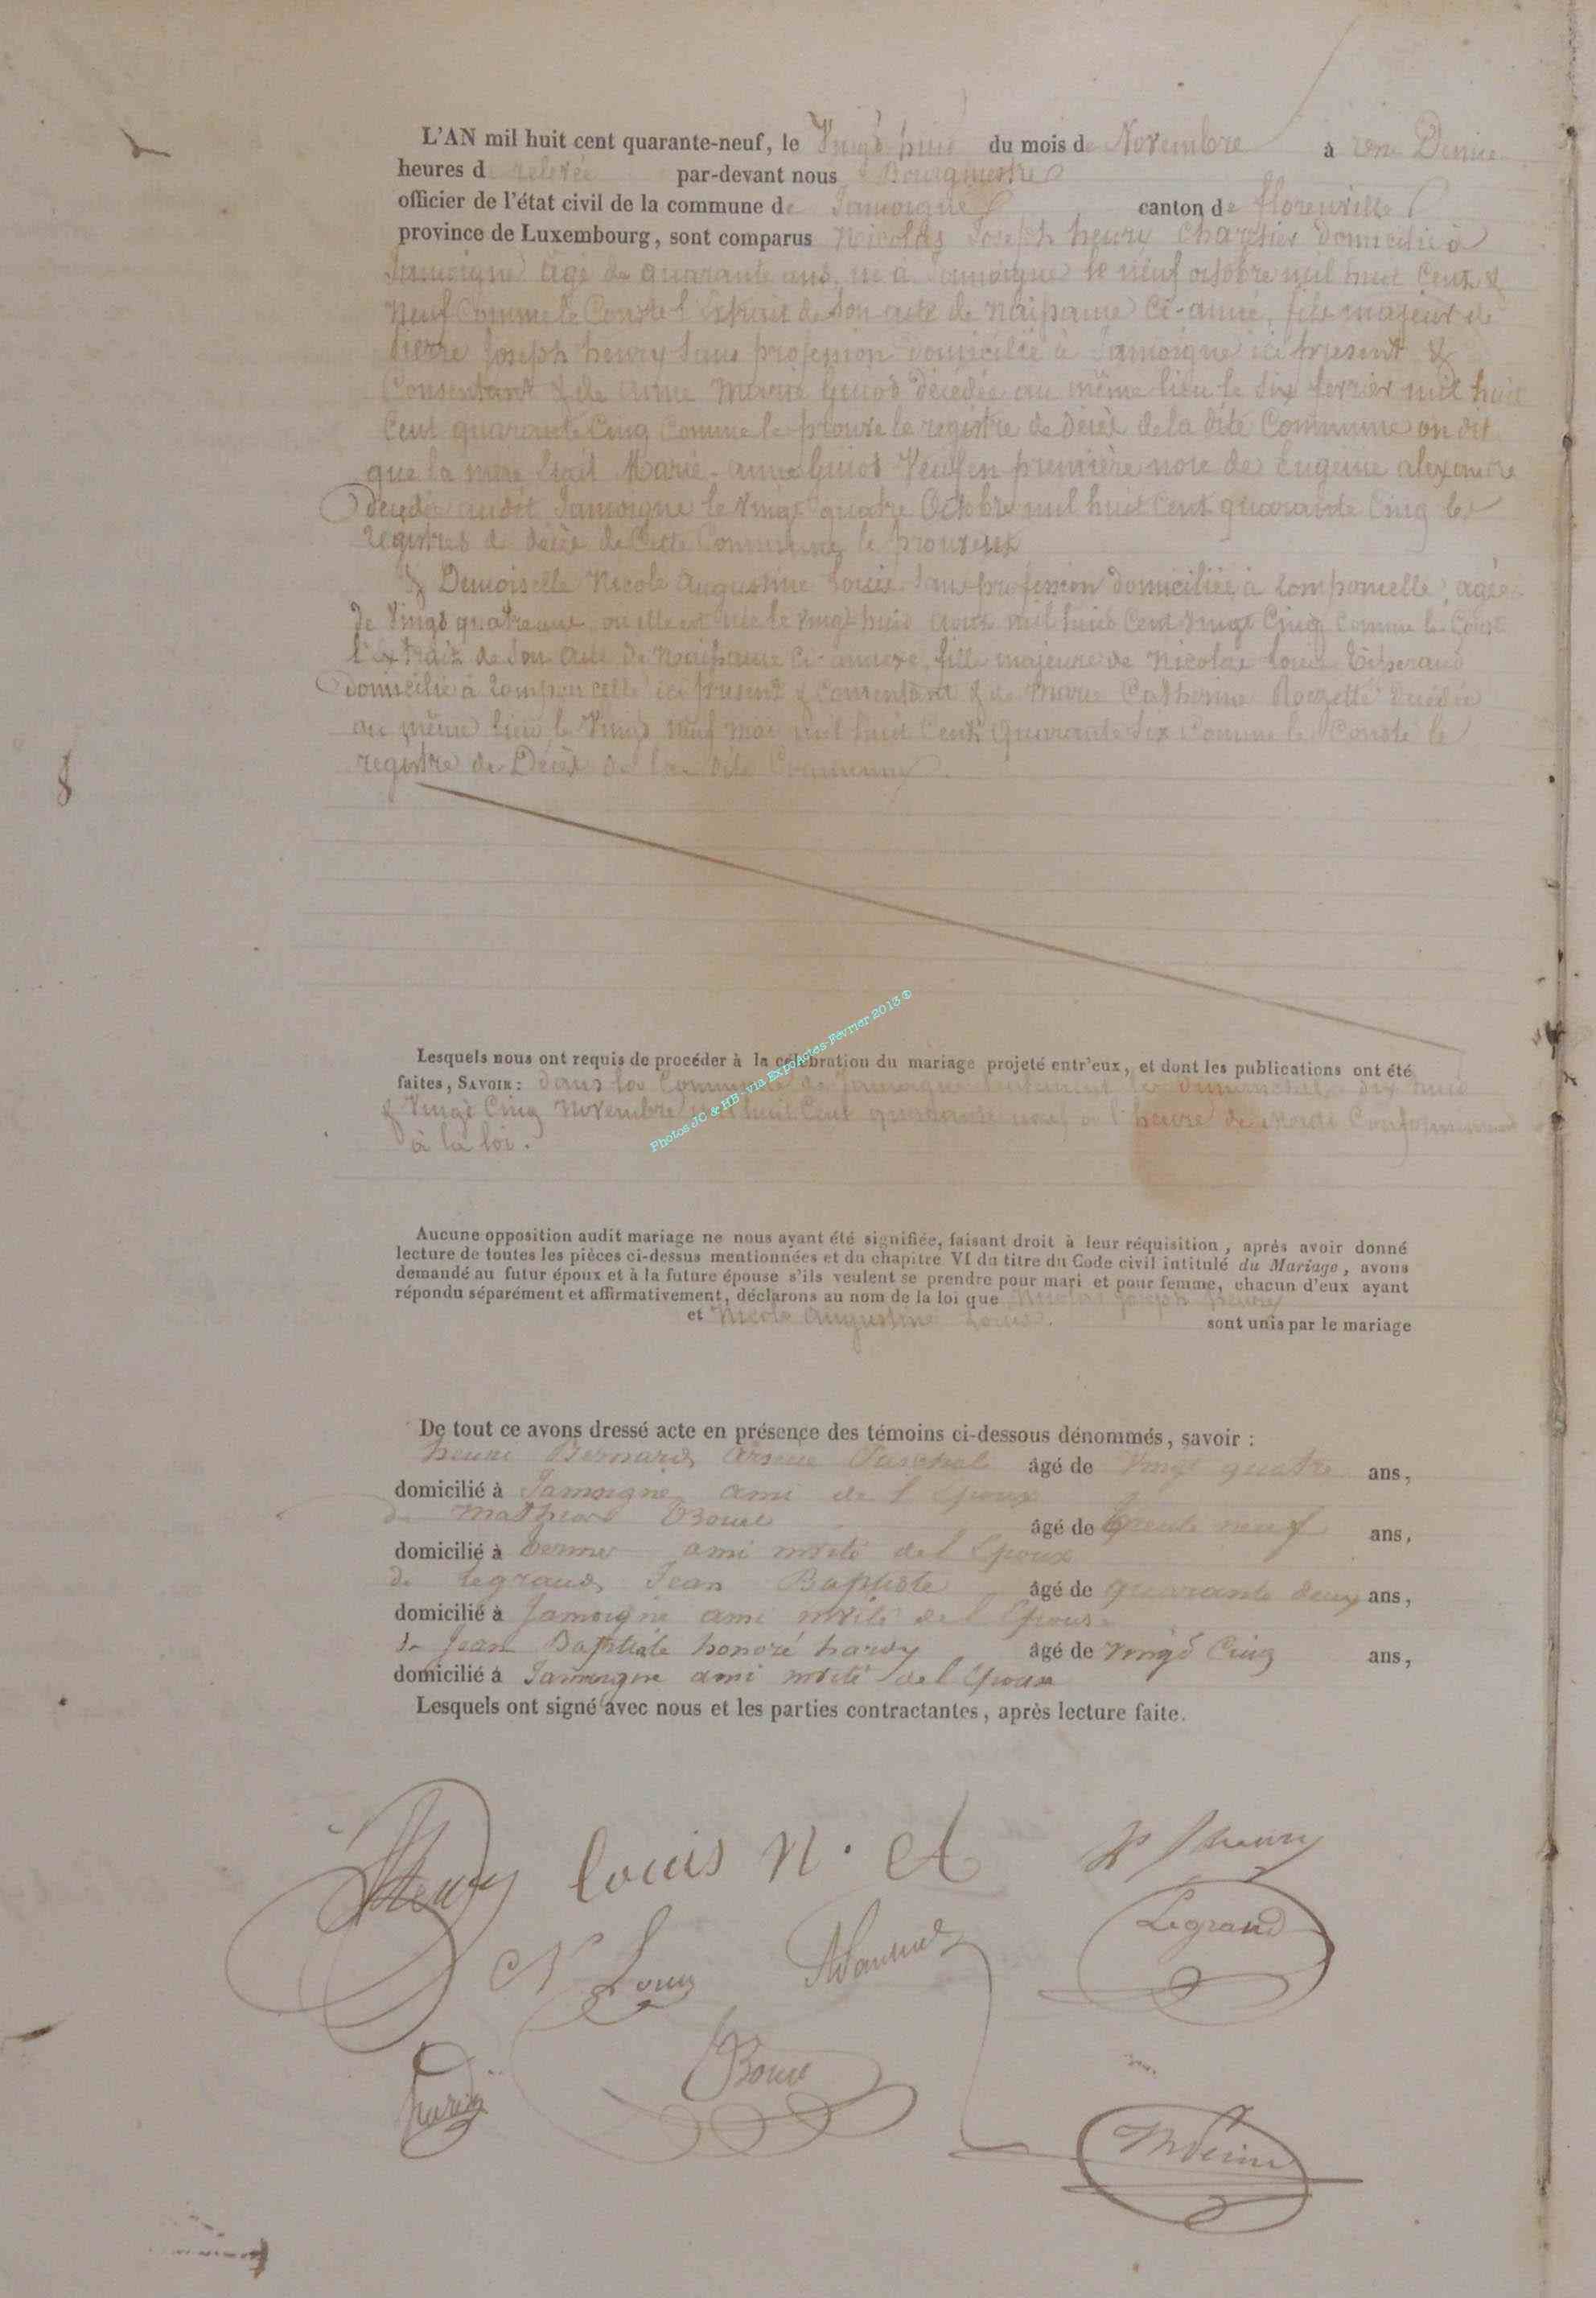 L'AN mil huit cent quarante-neuf, le Vingt huit du mois de Novembre à une Demie
heures de relevée par-devant nous Bourgmestre
officier de l'état civil de la commune de Jamoigne canton de florenville
province de Luxembourg, sont comparus Nicolas Joseph henry Charpentier domicilié à
Jamoigne âgé de quarante ans, né à Jamoigne le neuf octobre mil huit Cent &
Neuf Comme le Conste l'extrait de son acte de Naissance Ci-annexé, fils majeur de
pierre Joseph henry Sans profession domicilié à Jamoigne ici présent &
Consentant & de anne Marie Guiot décédée au même lieu le six fevrier mil huit
Cent quarante Cinq Comme le prouve le registre de décès de la dite Commune on dit
que la mère était Marie-anne Guiot Veuf en première noce de Eugenie alexandre
décédée audit Jamoigne le Vingt quatre Octobre mil huit Cent quarante Cinq les
registres de décès de Cette Commune le prouvent
& Demoiselle Nicole Augustine Louis Sans profession domiciliée à romponcelle, agée
de Vingt quatre ans, où elle est née le vingt huit août mil huit Cent vingt Cinq Comme le Conste
l'extrait de son acte de Naissance Ci-annexé, fille majeure de Nicolas Louis
domicilié à romponcelle ici présent & Consentant & de Marie Catherine Rozette décédée
au même lieu le Vingt neuf mai mil huit Cent Quarante Six Comme le Conste le
registre de Décès de la dite Commune.
Lesquels nous ont requis de procéder à la célébration du mariage projeté entr'eux, et dont les publications ont été
faites, SAVOIR: dans la Commune de Jamoigne seulement les dimanches dix huit
& Vingt Cinq Novembre mil huit Cent quarante neuf à l'heure de Midi Conformément
à la loi.
Photos JC & HB - via ExpoActes-Février 2013 ©
Aucune opposition audit mariage ne nous ayant été signifiée, faisant droit à leur réquisition, après avoir donné
lecture de toutes les pièces ci-dessus mentionnées et du chapitre VI du titre du Code civil intitulé du Mariage, avons
demandé au futur époux et à la future épouse s'ils veulent se prendre pour mari et pour femme, chacun d'eux ayant
répondu séparément et affirmativement, déclarons au nom de la loi que Nicolas Joseph henry
et Nicole Augustine Louis. sont unis par le mariage
De tout ce avons dressé acte en présence des témoins ci-dessous dénommés, savoir :
Bernard Arsene Paschal âgé de Vingt quatre ans,
domicilié à Jamoigne ami de l'Epoux
de Mathieu Boué âgé de trente neuf ans,
domicilié à ami invité de l'Epoux
de Legrand Jean Baptiste âgé de quarante deux ans,
domicilié à Jamoigne ami invité de l'Epouse
de Jean Baptiste honoré hardy âgé de vingt Cinq ans,
domicilié à Jamoigne ami invité de l'Epoux
Lesquels ont signé avec nous et les parties contractantes, après lecture faite.
Henry Louis N. A P J henry
N Louis Legrand
Boué